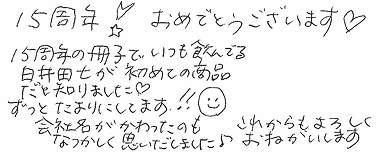 15周年！☆ おめでとうございます♡
15周年の冊子でいつも飲んでる
白井田七が初めての商品
だと知りました♡
ずっとたよりにしてます!!
会社名がかわったのも
なつかしく思いだしました♪
これからもよろしく
おねがいします